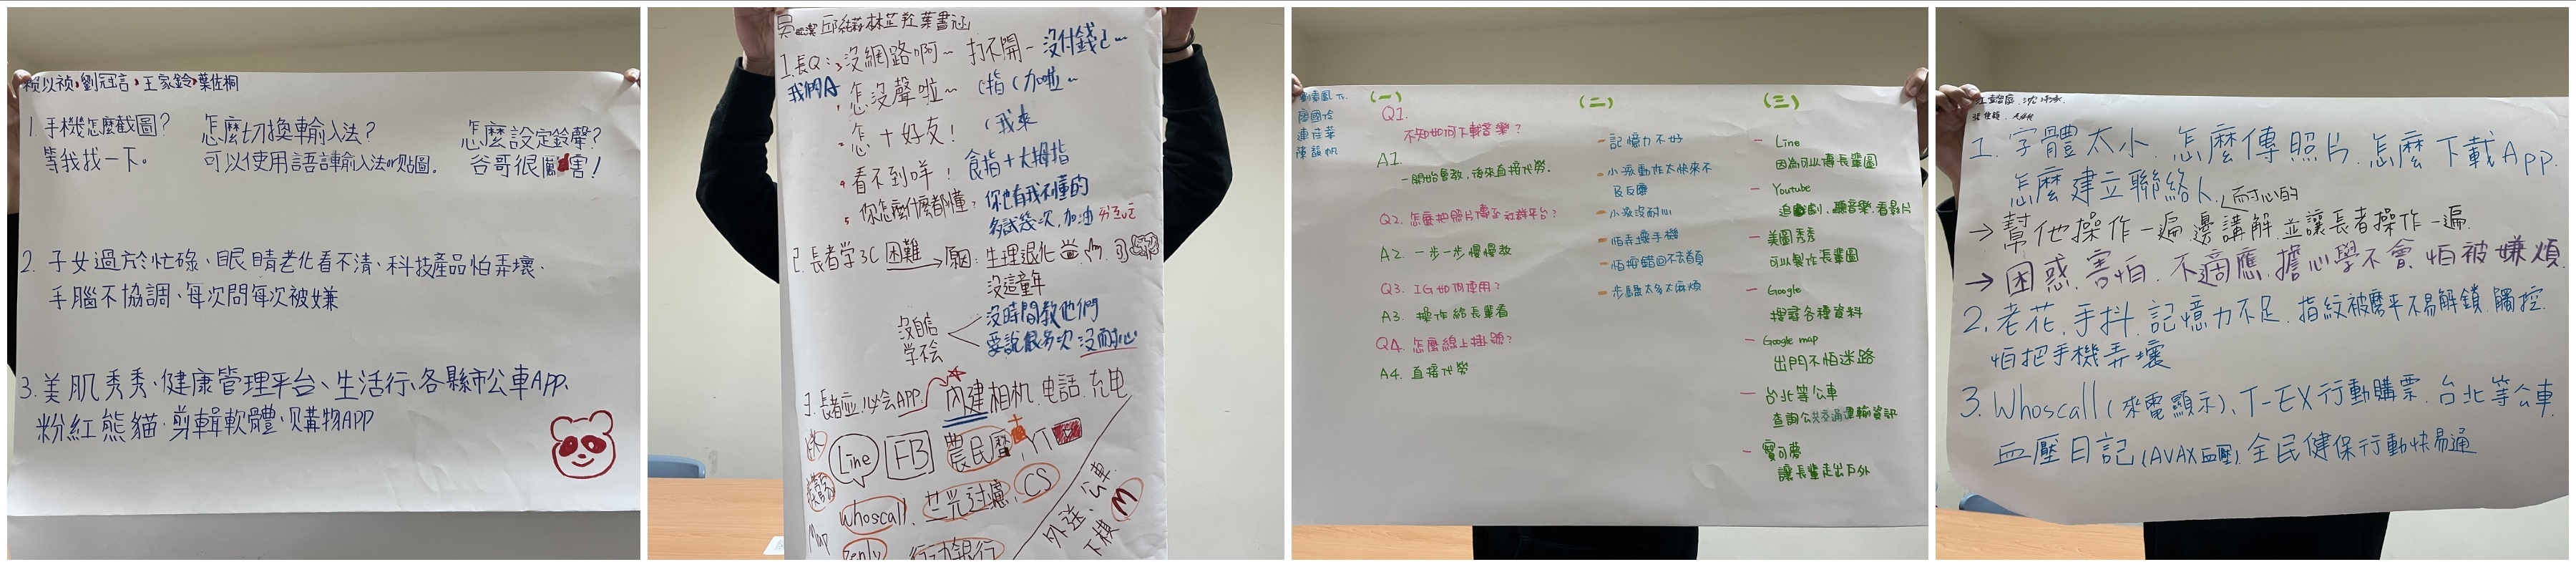 賴以禎、劉冠言、王家鈴、葉佐桐
1. 手機怎麼截圖? 怎麼切換輸入法? 怎麼設定鈴聲?
等我找一下。 可以使用語音輸入法or貼圖. 谷哥很厲害!
2. 子女過於忙碌、眼睛老化看不清、科技產品怕弄壞、
手腦不協調、每次問每次被嫌
3. 美肌秀秀、健康管理平台、生活行、各縣市公車App、
粉紅熊貓、剪輯軟體、購物APP
1. 長Q: 沒網路啊~ 打不開~ 沒付錢
我們A 怎沒聲啦~ (指(加啦~
怎+好友! (我來
看不到咩! 食指+大拇指
你怎麼什麼都懂? 你也有我不懂的
多試幾次,加油
2. 長者学3C困難 → 原因: 生理退化
沒這童年
沒自信 沒時間教他們
学不会 要說很多次 沒耐心
3. 長者应必会APP. 內建相机.电話.充电
Line FB 農民曆 YT
Whoscall. 芘光过濾. CS
Map 行动銀行
外送、公車
下棋 M
(一) (二) (三)
Q1.
不知如何下載音樂?
A1.
一開始會教,後來直接代勞.
Q2. 怎麼把照片傳至社群平台?
A2. 一步一步慢慢教
Q3. IG如何使用?
A3. 操作給長輩看
Q4. 怎麼線上掛號?
A4. 直接代勞
- 記憶力不好
- 小孩動作太快來不
及反應
- 小孩沒耐心
- 怕弄壞手機
- 怕按錯回不去首頁
- 步驟太多太麻煩
- Line
因為可以傳長輩圖
- Youtube
追劇,聽音樂,看影片
- 美圖秀秀
可以製作長輩圖
- Google
搜尋各種資料
- Google map
出門不怕迷路
- 台北等公車
查詢公共交通運輸資訊
- 寶可夢
讓長輩走出戶外
1. 字體太小. 怎麼傳照片. 怎麼下載App.
怎麼建立聯絡人 耐心的
→ 幫他操作一遍邊講解.並讓長者操作一遍.
→ 困惑. 害怕. 不適應. 擔心學不會. 怕被嫌煩.
2. 老花. 手抖. 記憶力不足. 指紋被磨平不易解鎖.觸控.
怕把手機弄壞
3. Whoscall(來電顯示). T-EX行動購票. 台北等公車.
血壓日記(AVAX血壓). 全民健保行動快易通